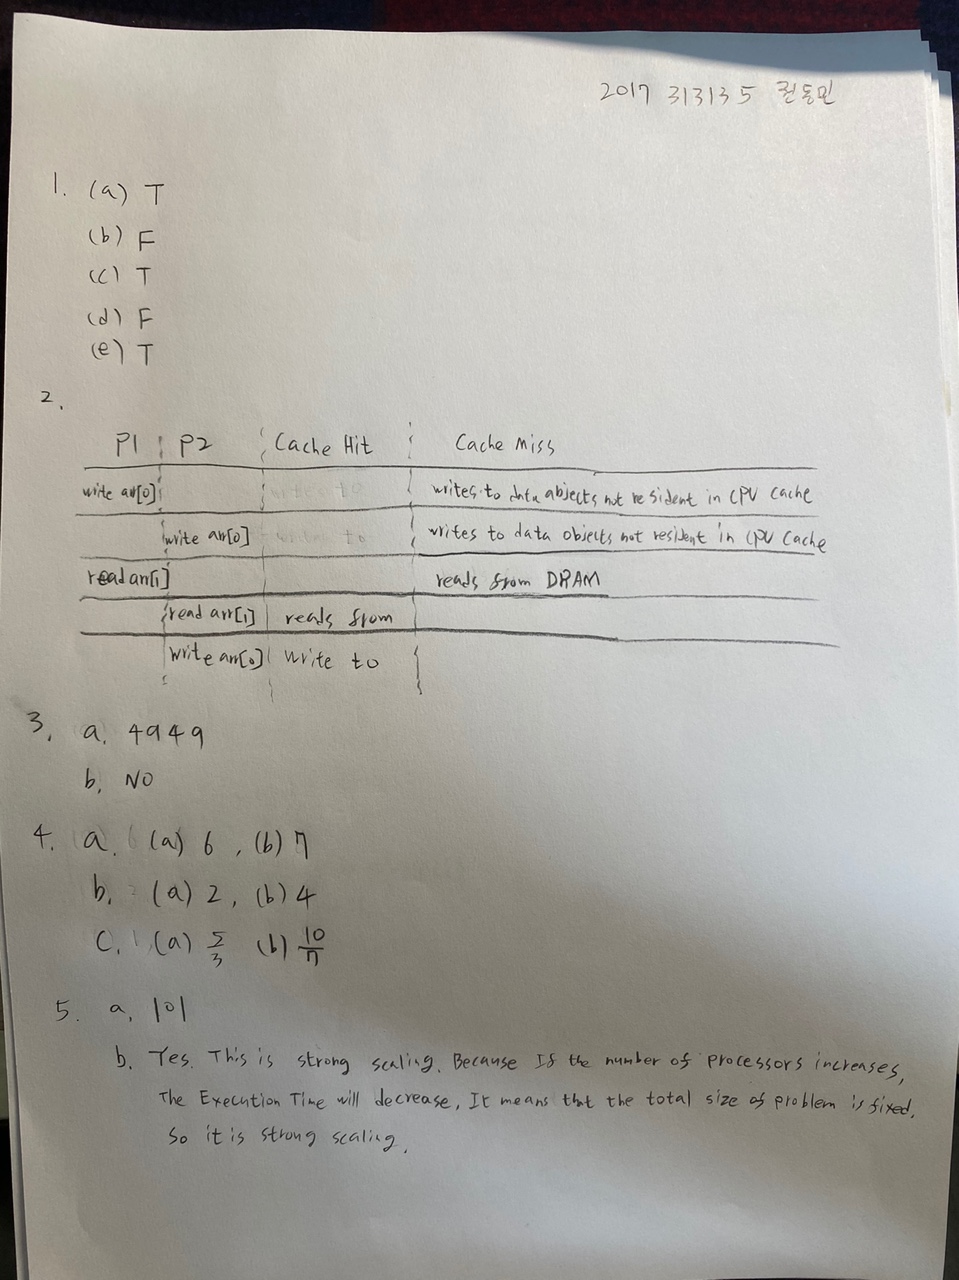 2017 313135 권동민
1. (a) T
(b) F
(c) T
(d) F
(e) T
2.
P1 P2 Cache Hit Cache Miss
write arr[0] writes to data objects not resident in CPU cache
write arr[0] writes to data objects not resident in CPU Cache
read arr[1] reads from DRAM
read arr[1] reads from
write arr[0] write to
3. a. 4949
b. NO
4. a. (a) 6, (b) 7
b. (a) 2, (b) 4
C. (a) 5/3 (b) 10/7
5. a. 101
b. Yes. This is strong scaling. Because If the number of processors increases,
The Execution Time will decrease. It means that the total size of problem is fixed.
So it is strong scaling.